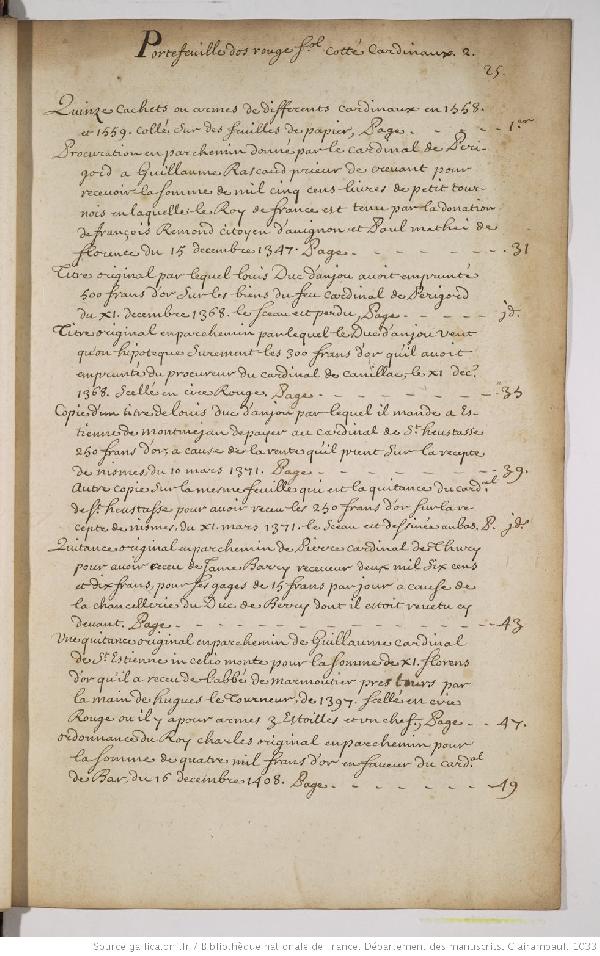 Portefeuille dos rouge f.ol Cotté Cardinaux. 2.
25.
Quinze Cachets ou armes de differents Cardinaux en 1558.
et 1559. collés sur des feuilles de papier, Page - - - - - 1.er
Procuration en parchemin donné par le Cardinal de Peri-
gord a Guillaume Rascard prieur de crevant pour
recevoir la somme de mil cinq cens livres de petit tour-
nois en laquelle le Roy de france est tenu par la donation
de françois Remond citoyen d'avignon et Paul mathei de
florence du 15 decembre 1347. Page - - - - - - 31
Titre original par lequel louis Duc d'anjou avoit emprunté
500 frans d'or sur les biens du feu Cardinal de Perigord
du XI. decembre 1368. le sceau est perdu, Page - - - - jd.
Titre original en parchemin par lequel le Duc d'anjou veut
qu'on hipoteque surement les 300 frans d'or qu'il avoit
emprunté du procureur du Cardinal de Canillac, le XI dec.e
1368. scellé en cire Rouge, Page - - - - - - - 35
Copie d'un titre de louis Duc d'anjou par lequel il mande a Es-
tienne de montmejan de payer au Cardinal de S.t heustasse
250 frans d'or, a cause de la rente qu'il prent sur la recepte
de nismes du 10 mars 1371. Page - - - - - - - 39.
Autre copie sur la mesme feuille qui est la quitance du card.al
de S.t heustasse pour avoir receu les 250 frans d'or sur la re-
cepte de nismes, du XI. mars 1371. le sceau est dessinée au bas. P. jd.
Quitance original en parchemin de Pierre Cardinal de Thury
pour avoir receu de Jame Barry receveur deux mil six cens
et dix frans, pour ses gages de 15 frans par jour a cause de
la chancellerie du Duc de Berry dont il estoit revetu cy
devant. Page - - - - - - - - - - - 43
Une quitance original en parchemin de Guillaume Cardinal
de S.t Estienne in celio monte pour la somme de XI. florens
d'or qu'il a receu de l'abbé de marmoutier pres tours par
la main de hugues le Tourneur, de 1397. scellé en cire
Rouge ou il y a pour armes 3 Estoilles et un chef, Page - - 47.
ordonnance du Roy charles original en parchemin pour
la somme de quatre mil frans d'or en faveur du Card.al
de Bar, du 16 decembre 1408. Page - - - - - - 49
Source gallica.bnf.fr / Bibliothèque nationale de France. Département des manuscrits. Clairambault 1033